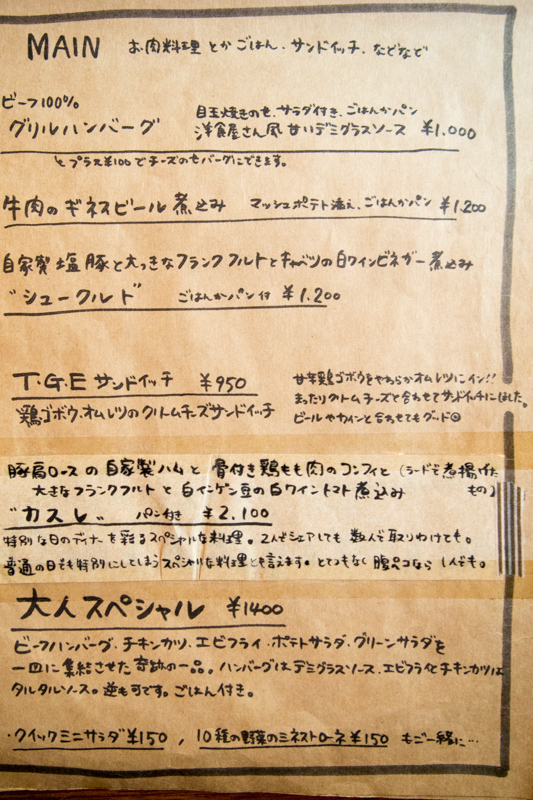 MAIN お肉料理 とか ごはん、サンドイッチ、などなど
ビーフ100%
グリルハンバーグ
目玉焼きのせ、サラダ付き、ごはんかパン
洋食屋さん風 甘いデミグラスソース ¥1,000
とプラス¥100でチーズのせバーグにできます。
牛肉のギネスビール煮込み マッシュポテト添え、ごはんかパン ¥1,200
自家製塩豚と大っきなフランクフルトとキャベツの白ワインビネガー煮込み
"シュークルド" ごはんかパン付 ¥1,200
T・G・E サンドイッチ ¥950
鶏ゴボウ、オムレツのクリームチーズサンドイッチ
甘辛鶏ゴボウをやわらかオムレツにイン!!
まったりクリームチーズと合わせてサンドイッチにしました。
ビールやワインと合わせてもグッド
豚肩ロースの自家製ハムと骨付き鶏もも肉のコンフィと(ラードで煮揚げたもの)
大きなフランクフルトと白インゲン豆の白ワイントマト煮込み
"カスレ" パン付き ¥2,100
特別な日のディナーを彩るスペシャルな料理。2人でシェアしても 数人で取りわけても。
普通の日でも特別にしてしまうスペシャルな料理とも言えます。とてつもなく腹ペコなら1人でも。
大人スペシャル ¥1400
ビーフハンバーグ、チキンカツ、エビフライ、ポテトサラダ、グリーンサラダを
一皿に集結させた奇跡の一品。ハンバーグはデミグラスソース、エビフライとチキンカツは
タルタルソース。逆も可です。ごはん付き。
・クイックミニサラダ¥150 , 10種の野菜のミネストローネ¥150 もご一緒に…